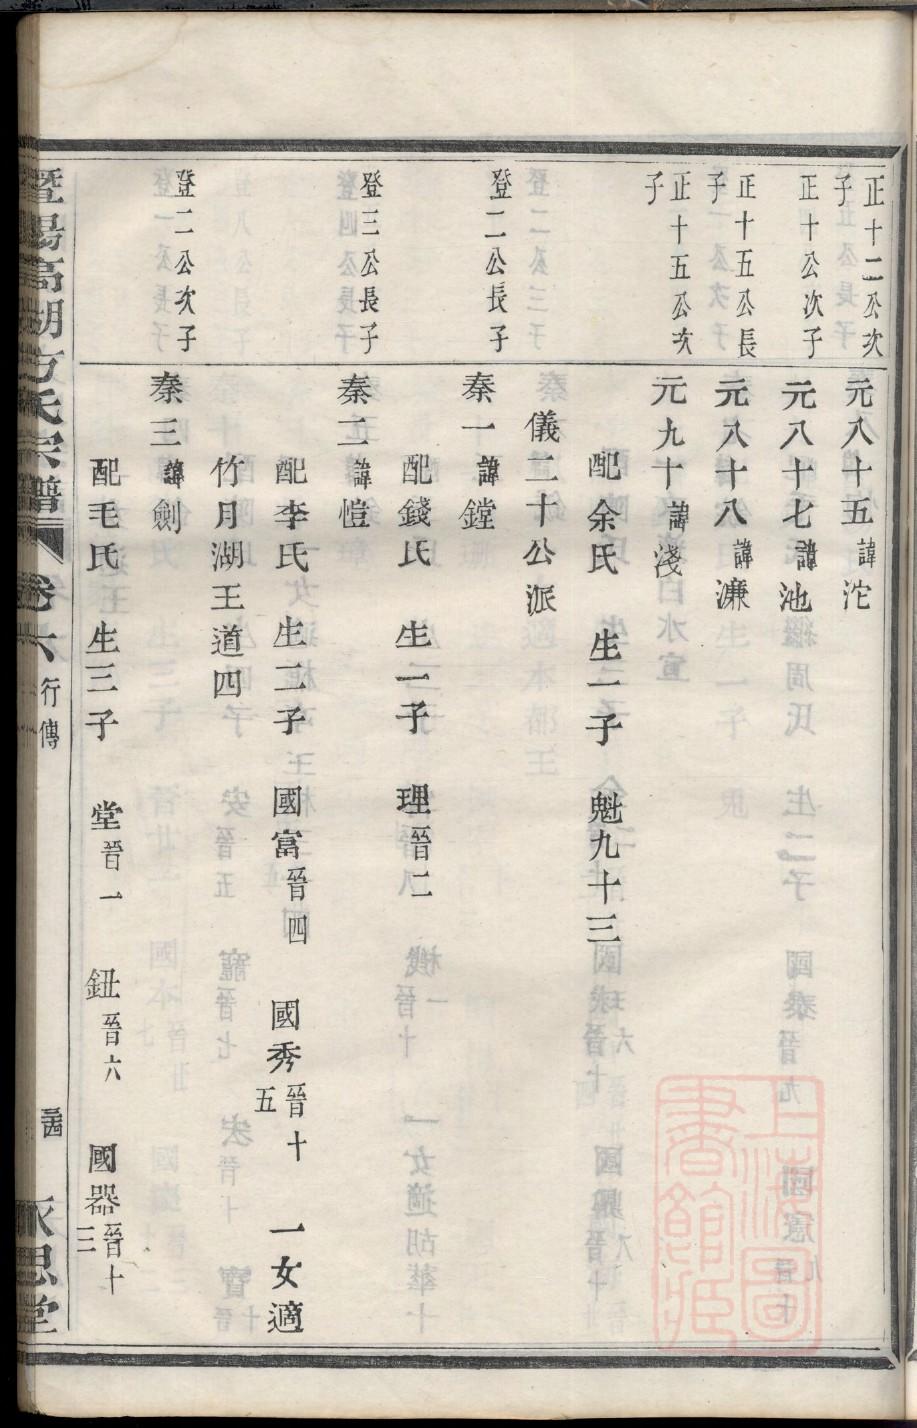 正十二公次子
元八十五諱沱
正十公次子
元八十七諱池
正十五公長子
元八十八諱濂
正十五公次子
元九十諱淺
配余氏 生一子 魁九十三
儀二十公派
登二公長子
秦一諱鏜
配錢氏 生一子 理晉二
登三公長子
秦二諱愷
配李氏 生二子 國富晉四 國秀晉十五 一女適
竹月湖王道四
登二公次子
秦三諱劍
配毛氏 生三子 堂晉一 鈕晉六 國器晉十三
暨陽高湖方氏宗譜 卷六 行傳 永思堂
上海圖書館藏